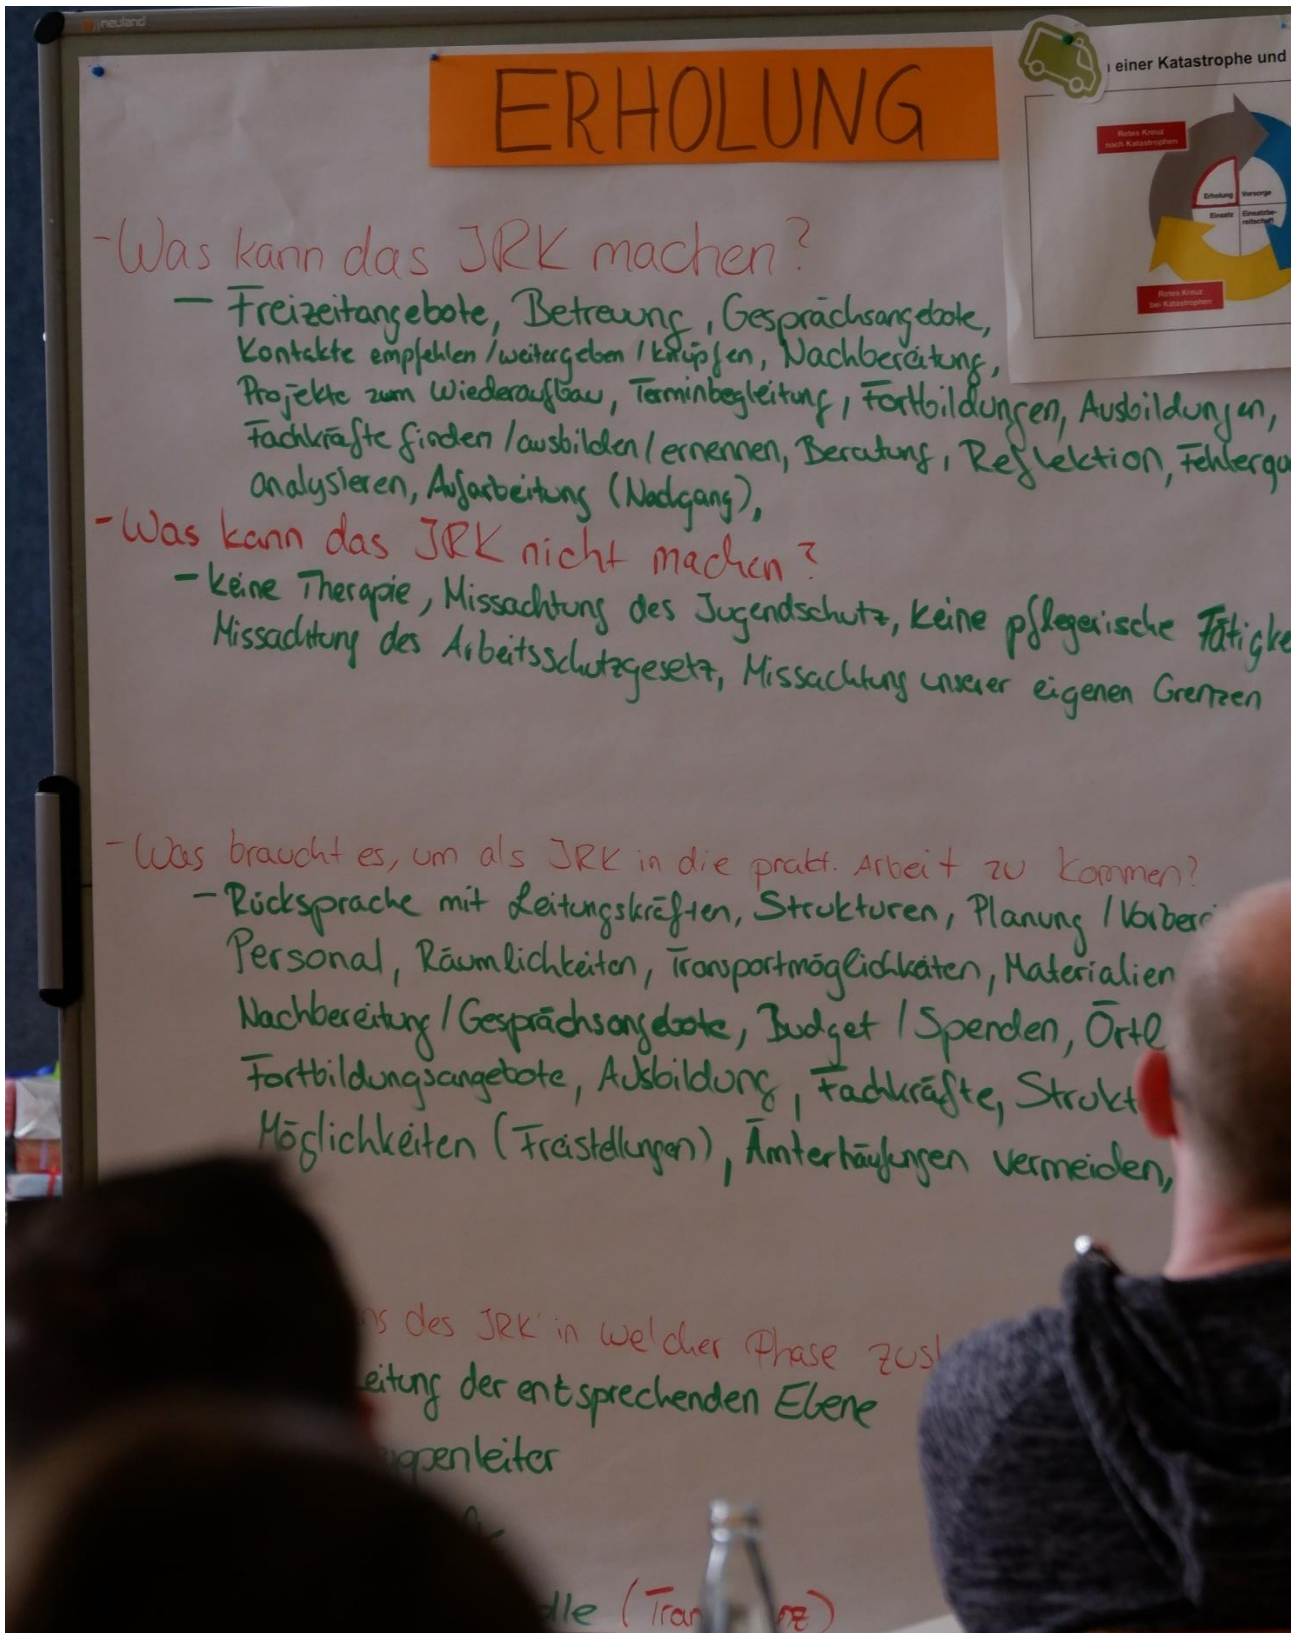 neuland
ERHOLUNG
einer Katastrophe und
Rotes Kreuz
nach Katastrophen
Erholung
Vorsorge
Einsatz
Einsatzbe-
reitschaft
Rotes Kreuz
bei Katastrophen
- Was kann das JRK machen?
- Freizeitangebote, Betreuung, Gesprächsangebote,
Kontakte empfehlen / weitergeben / knüpfen, Nachbereitung,
Projekte zum Wiederaufbau, Terminbegleitung, Fortbildungen, Ausbildungen,
Fachkräfte finden / ausbilden / ernennen, Beratung, Reflektion,
analysieren, Aufarbeitung (Nachgang),
- Was kann das JRK nicht machen?
- keine Therapie, Missachtung des Jugendschutz, keine pflegerische
Missachtung des Arbeitsschutzgesetz, Missachtung unserer eigenen Grenzen
- Was braucht es, um als JRK in die prakt. Arbeit zu kommen?
- Rücksprache mit Leitungskräften, Strukturen, Planung /
Personal, Räumlichkeiten, Transportmöglichkeiten, Materialien
Nachbereitung / Gesprächsangebote, Budget / Spenden,
Fortbildungsangebote, Ausbildung, Fachkräfte,
Möglichkeiten (Freistellungen), Ämterhäufungen vermeiden,
des JRK in welcher Phase
der entsprechenden Ebene